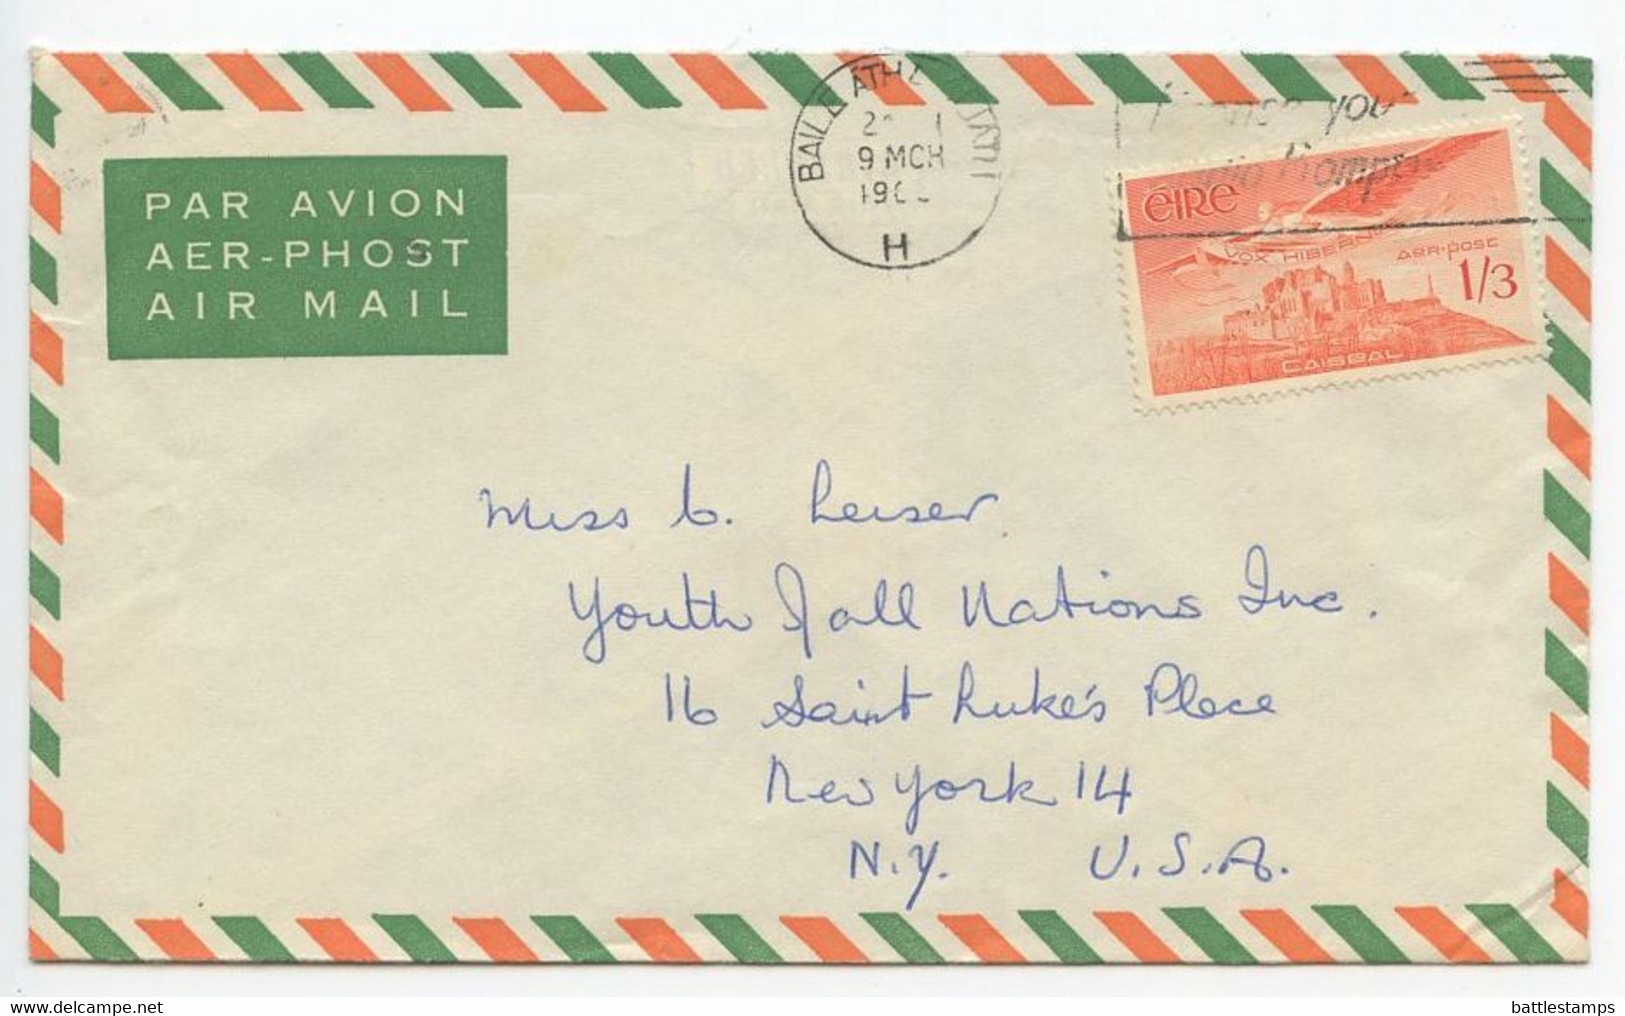 PAR AVION
AER-PHOST
AIR MAIL
BAILE ATH
9 MCH
H
you
ÉIRE
VOX HIBERNIÆ
AER-POST
1/3
CAISEAL
Miss G. Leiser
Youth of all Nations Inc.
16 Saint Luke's Place
New York 14
N.Y. U.S.A.
www.delcampe.net
battlestamps